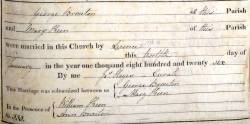 George Brunton of this Parish
and Mary Peen of this Parish
were married in this Church by Licence
this twelfth day of
in the year one thousand eight hundred and twenty six
By me Curate
This Marriage was solemnized between us George Brunton
Mary Peen
In the Presence of William Peen
Ann Brunton
No.